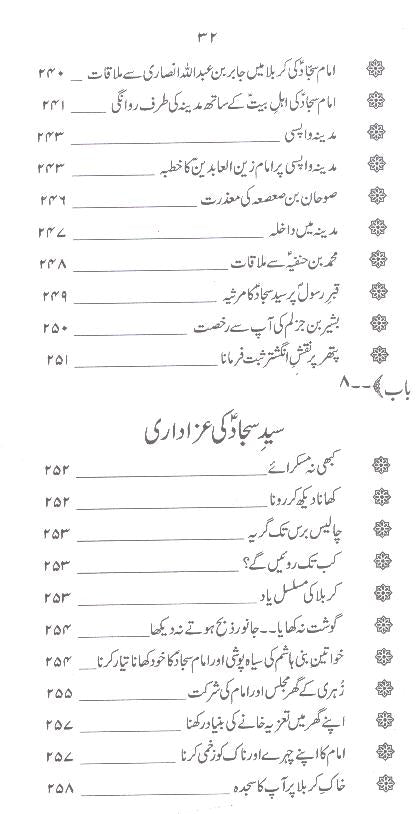 ۳۲
امام سجادؑ کی کربلا میں جابر بن عبداللہ انصاری سے ملاقات ۲۴۰
امام سجادؑ کی اہلِ بیتؑ کے ساتھ مدینہ کی طرف روانگی ۲۴۱
مدینہ واپسی ۲۴۳
مدینہ واپسی پر امام زین العابدینؑ کا خطبہ ۲۴۳
صوحان بن صعصعہ کی معذرت ۲۴۶
مدینہ میں داخلہ ۲۴۷
محمد بن حنفیہؑ سے ملاقات ۲۴۸
قبرِ رسولؐ پر سید سجادؑ کا مرثیہ ۲۴۹
بشیر بن جزلم کی آپ سے رخصت ۲۵۰
پتھر پر نقشِ انگشتر ثبت فرمانا ۲۵۱
باب ﴾۔۔۸
سیدِ سجادؑ کی عزاداری
کبھی نہ مسکرائے ۲۵۲
کھانا دیکھ کر رونا ۲۵۲
چالیس برس تک گریہ ۲۵۳
کب تک روئیں گے؟ ۲۵۳
کربلا کی مسلسل یاد ۲۵۳
گوشت نہ کھایا۔۔جانور ذبح ہوتے نہ دیکھا ۲۵۴
خواتین بنی ہاشم کی سیاہ پوشی اور امام سجادؑ کا خود کھانا تیار کرنا ۲۵۴
زُہری کے گھر مجلس اور امام کی شرکت ۲۵۵
اپنے گھر میں تعزیہ خانے کی بنیاد رکھنا ۲۵۷
امام کا اپنے چہرے اور ناک کو زخمی کرنا ۲۵۷
خاکِ کربلا پر آپ کا سجدہ ۲۵۸